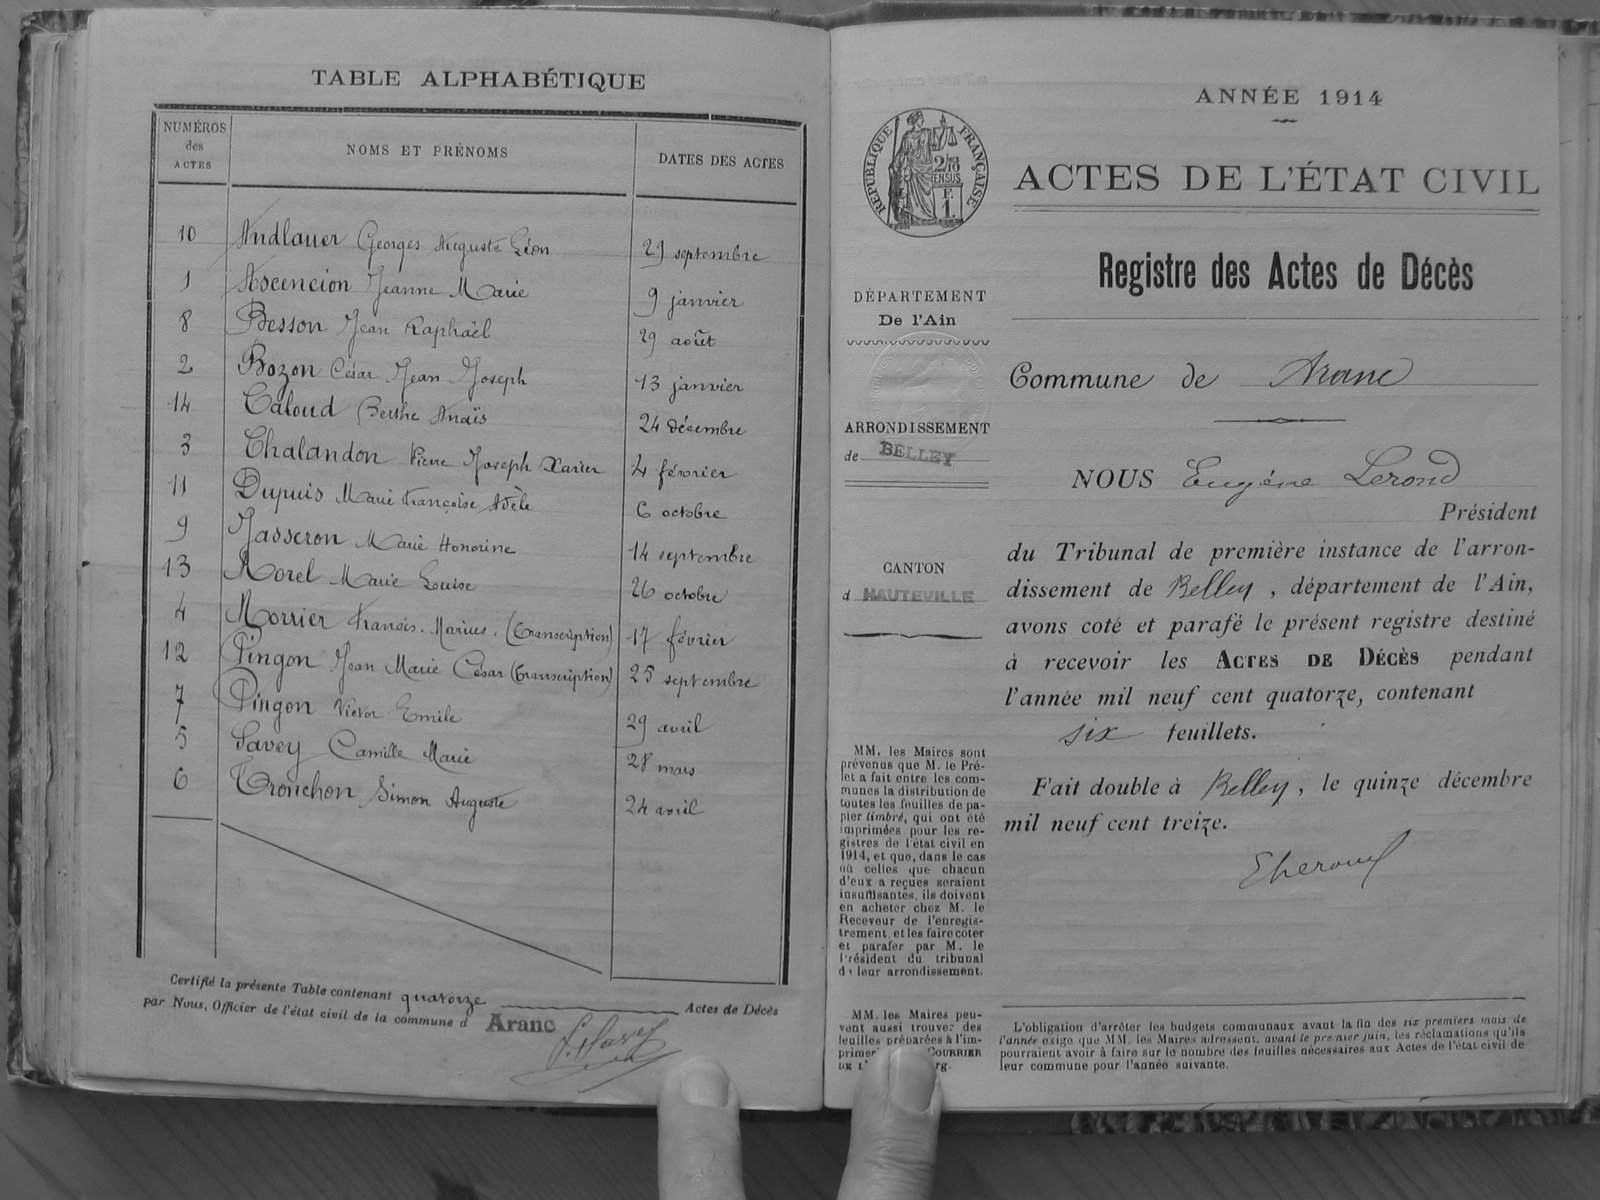 TABLE ALPHABÉTIQUE
NUMÉROS des ACTES
NOMS ET PRÉNOMS
DATES DES ACTES
10 Andlauer Georges Auguste Léon 29 septembre
1 Ascencion Jeanne Marie 9 janvier
8 Besson Jean Raphaël 29 août
2 Bozon César Jean Joseph 13 janvier
14 Caloud Berthe Anaïs 24 décembre
3 Chalandon Pierre Joseph Xavier 4 février
11 Dupuis Marie Françoise Adèle 6 octobre
9 Masseron Marie Honorine 14 septembre
13 Morel Marie Louise 26 octobre
4 Morrier Francis. Marius. (Transcription) 17 février
12 Pingon Jean Marie César (Transcription) 25 septembre
7 Pingon Victor Emile 29 avril
5 Savey Camille Marie 28 mars
6 Tronchon Simon Auguste 24 avril
Certifié la présente Table contenant quatorze Actes de Décès
par Nous, Officier de l'état civil de la commune d Aranc
ANNÉE 1914
RÉPUBLIQUE FRANÇAISE
ACTES DE L'ÉTAT CIVIL
Registre des Actes de Décès
DÉPARTEMENT
De l'Ain
Commune de Aranc
ARRONDISSEMENT
de BELLEY
CANTON
d HAUTEVILLE
NOUS Eugène Lerond
Président
du Tribunal de première instance de l'arron-
dissement de Belley, département de l'Ain,
avons coté et parafé le présent registre destiné
à recevoir les ACTES DE DÉCÈS pendant
l'année mil neuf cent quatorze, contenant
six feuillets.
Fait double à Belley, le quinze décembre
mil neuf cent treize.
MM. les Maires sont
prévenus que M. le Pré-
fet a fait entre les com-
munes la distribution de
toutes les feuilles de pa-
pier timbré, qui ont été
imprimées pour les re-
gistres de l'état civil en
1914, et que, dans le cas
où celles que chacun
d'eux a reçues seraient
insuffisantes, ils doivent
en acheter chez M. le
Receveur de l'enregis-
trement, et les faire coter
et parafer par M. le
Président du tribunal
de leur arrondissement.
MM. les Maires peu-
vent aussi trouver des
feuilles préparées à l'im-
COURRIER
L'obligation d'arrêter les budgets communaux avant la fin des six premiers mois de
l'année exige que MM. les Maires adressent, avant le premier juin, les réclamations qu'ils
pourraient avoir à faire sur le nombre des feuilles nécessaires aux Actes de l'état civil de
leur commune pour l'année suivante.